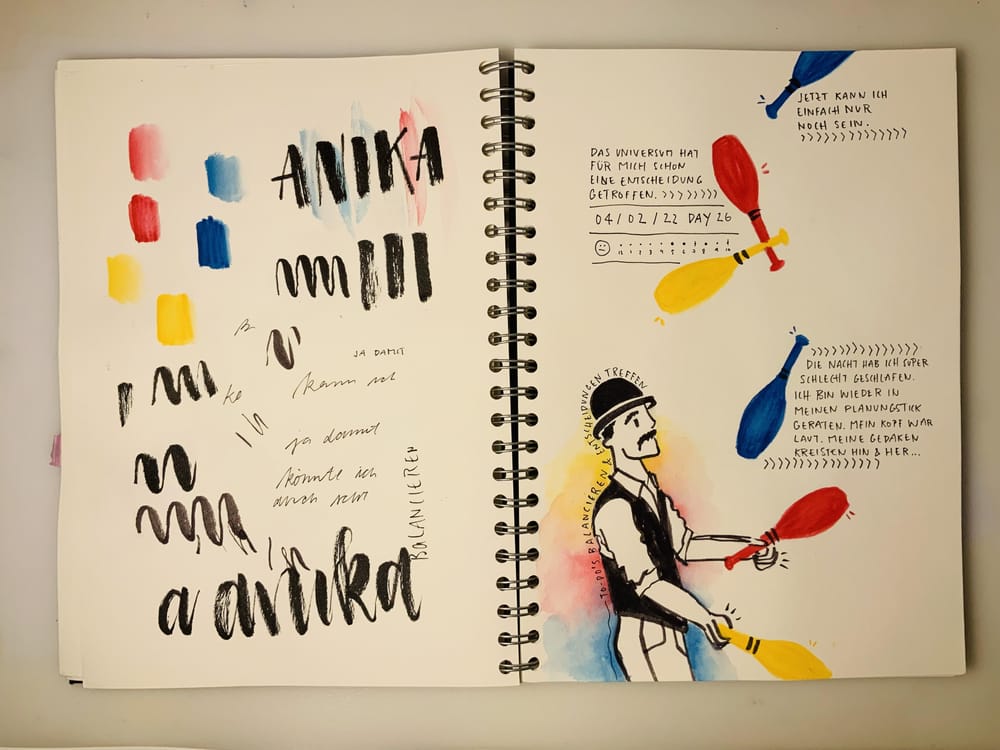 ANIKA
JA DAMIT
ke
kann ich
ja damit
könnte ich
auch sehr
BALANCIEREN
a anika
JETZT KANN ICH
EINFACH NUR
NOCH SEIN.
DAS UNIVERSUM HAT
FÜR MICH SCHON
EINE ENTSCHEIDUNG
GETROFFEN. >>>>>>>>
04/02/22 DAY 26
DIE NACHT HAB ICH SUPER
SCHLECHT GESCHLAFEN.
ICH BIN WIEDER IN
MEINEN PLANUNGSTICK
GERATEN. MEIN KOPF WAR
LAUT. MEINE GEDAKEN
KREISTEN HIN & HER...
TO-DO'S BALANCIEREN & ENTSCHEIDUNGEN TREFFEN